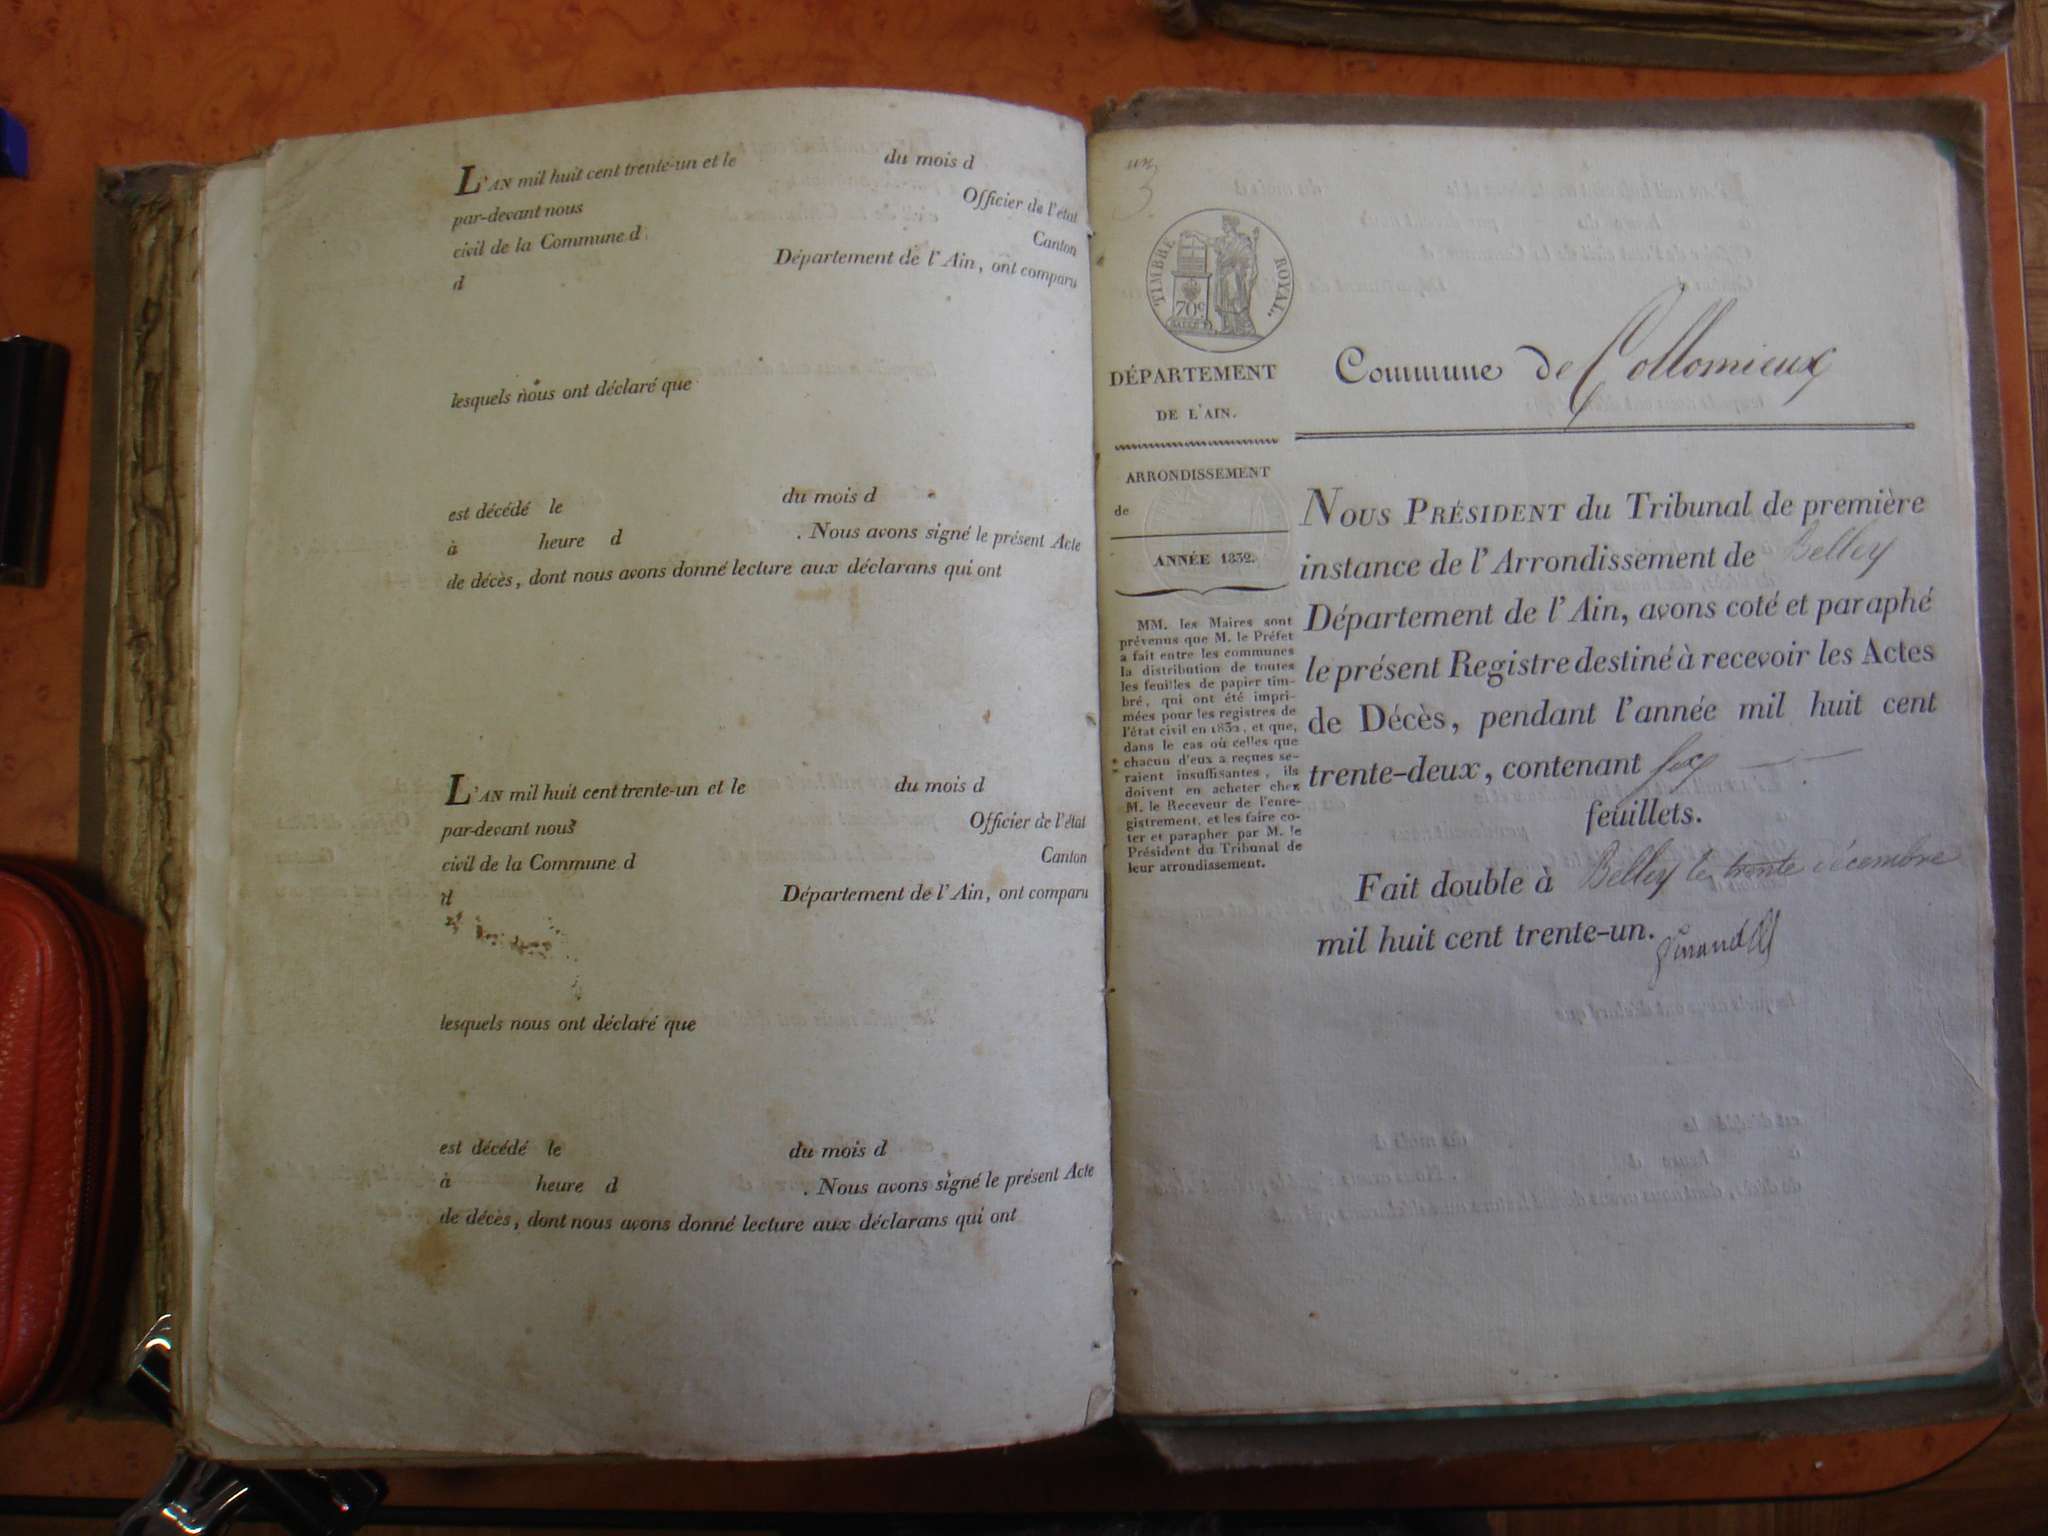 L'AN mil huit cent trente-un et le du mois d
par-devant nous Officier de l'état
civil de la Commune d Canton
d Département de l'Ain, ont comparu
lesquels nous ont déclaré que
est décédé le du mois d
à heure d . Nous avons signé le présent Acte
de décès, dont nous avons donné lecture aux déclarans qui ont
L'AN mil huit cent trente-un et le du mois d
par-devant nous Officier de l'état
civil de la Commune d Canton
d Département de l'Ain, ont comparu
lesquels nous ont déclaré que
est décédé le du mois d
à heure d . Nous avons signé le présent Acte
de décès, dont nous avons donné lecture aux déclarans qui ont
un
TIMBRE ROYAL
70c
DÉPARTEMENT
DE L'AIN.
ARRONDISSEMENT
de
ANNÉE 1832.
MM. les Maires sont
prévenus que M. le Préfet
a fait entre les communes
la distribution de toutes
les feuilles de papier tim-
bré, qui ont été impri-
mées pour les registres de
l'état civil en 1832, et que,
dans le cas où celles que
chacun d'eux a reçues se-
raient insuffisantes, ils
doivent en acheter chez
M. le Receveur de l'enre-
gistrement, et les faire co-
ter et parapher par M. le
Président du Tribunal de
leur arrondissement.
Commune de Collomieux
NOUS PRÉSIDENT du Tribunal de première
instance de l'Arrondissement de Belley
Département de l'Ain, avons coté et paraphé
le présent Registre destiné à recevoir les Actes
de Décès, pendant l'année mil huit cent
trente-deux, contenant six
feuillets.
Fait double à Belley le trente décembre
mil huit cent trente-un.